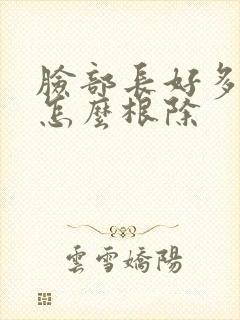 臉部長好多
怎麼根除
雲雪嬌陽